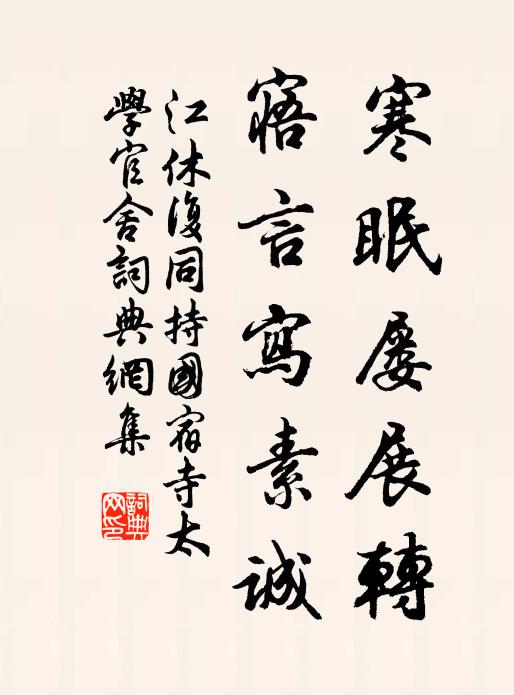 寒眠屡展轉
寤言寫素誠
江休復同持國宿寺太
學官舍詞典網集
詞典
网印